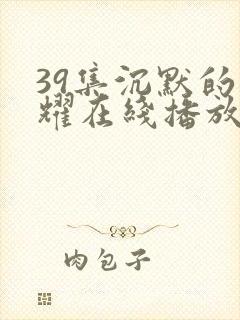 39集沉默的
耀在线播放
肉包子